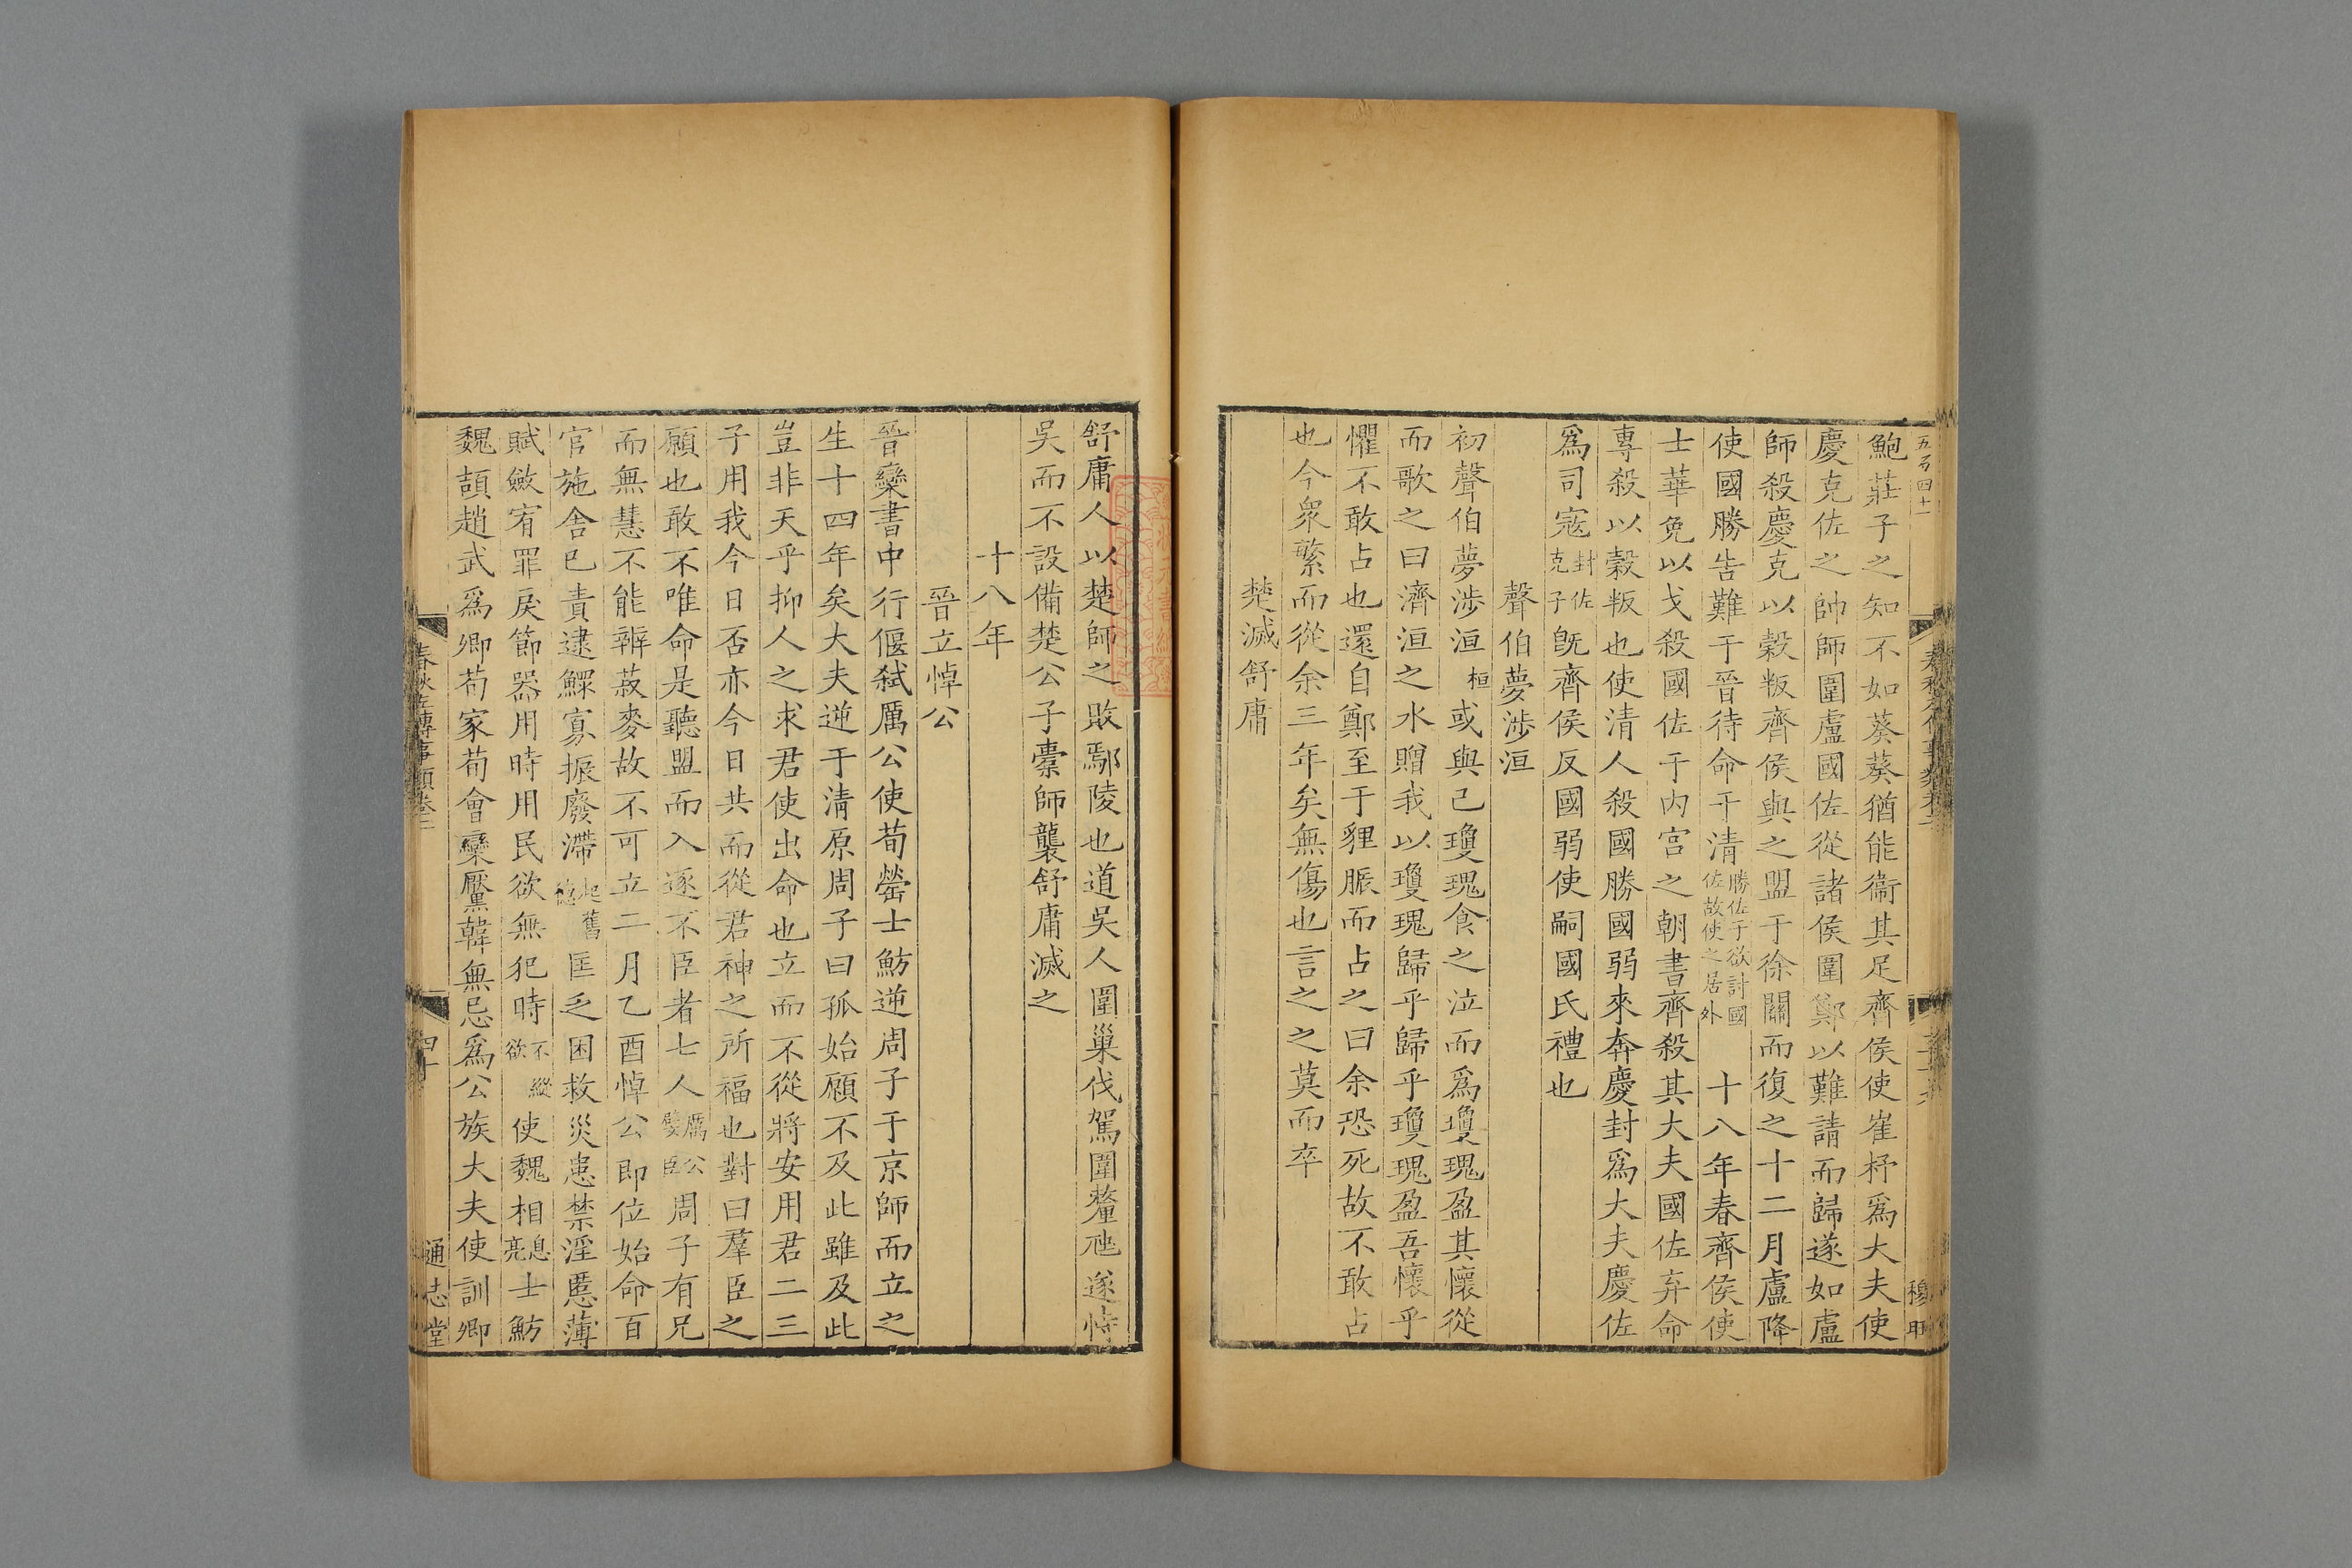 五百四十
鮑莊子之知不如葵葵猶能衞其足齊侯使崔杼爲大夫使
慶克佐之帥師圍盧國佐從諸侯圍鄭以難請而歸遂如盧
師殺慶克以穀叛齊侯與之盟于徐關而復之十二月盧降
使國勝告難于晉待命于清勝佐子欲討國佐故使之居外 十八年春齊侯使
士華免以戈殺國佐于内宮之朝書齊殺其大夫國佐弃命
專殺以穀叛也使清人殺國勝國弱來奔慶封爲大夫慶佐
爲司寇封佐克子旣齊侯反國弱使嗣國氏禮也
聲伯夢渉洹
初聲伯夢渉洹桓或與己瓊瑰食之泣而爲瓊瑰盈其懷從
而歌之曰濟洹之水贈我以瓊瑰歸乎歸乎瓊瑰盈吾懷乎
懼不敢占也還自鄭至于貍脤而占之曰余恐死故不敢占
也今衆繁而從余三年矣無傷也言之之莫而卒
楚滅舒庸
穆甲
舒庸人以楚師之敗鄢陵也道吳人圍巢伐駕圍釐虺遂恃
吳而不設備楚公子橐師襲舒庸滅之
十八年
晉立悼公
晉欒書中行偃弑厲公使荀罃士魴逆周子于京師而立之
生十四年矣大夫逆于清原周子曰孤始願不及此雖及此
豈非天乎抑人之求君使出命也立而不從將安用君二三
子用我今日否亦今日共而從君神之所福也對曰羣臣之
願也敢不唯命是聽盟而入逐不臣者七人厲公嬖臣周子有兄
而無慧不能辨菽麥故不可立二月乙酉悼公即位始命百
官施舍已責逮鰥寡振廢滯起舊德匡乏困救災患禁淫慝薄
賦斂宥罪戾節器用時用民欲無犯時不縱欲使魏相息亮士魴
魏頡趙武爲卿荀家荀會欒黶韓無忌爲公族大夫使訓卿
春秋左傳事類卷二
四十
通志堂